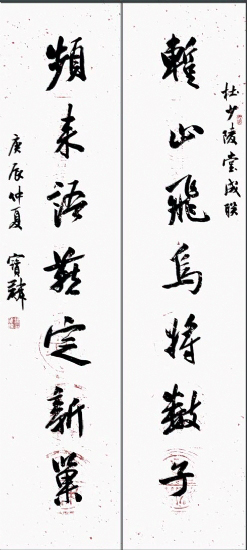 杜少陵堂成联
暫止飛烏將數子
頻来語燕定新巢
庚辰仲夏 寶麟